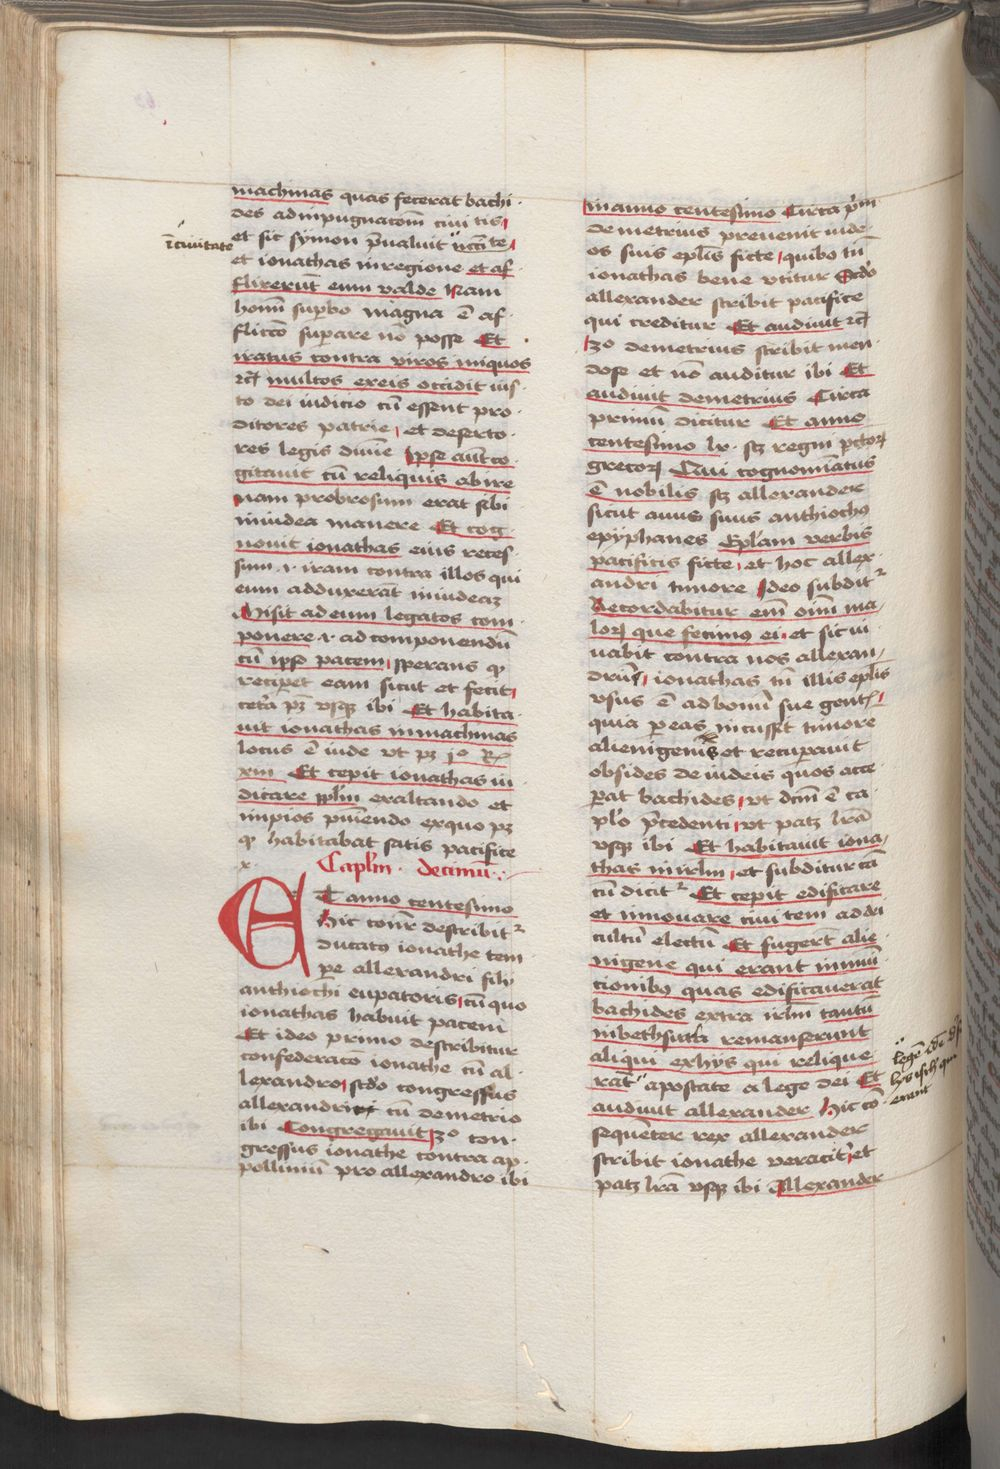 machinas quas fecerat bachi
des ad inpugnacōm civitis
et sic symon p̄valuit
ī civitate
et ionathas in regione et af
flixerūt eum valde Nam
homī supbo magna ē af
flicco superare nō posse Et
iratus contra viros iniquos
rc̄ multos ex eis occidit ius
to dei iudicio cū essent pro
ditores patrie et deserto
res legis divīe ipse aūt co
gitavit cū reliquis abire
nam probrosum erat sibi
in iudea manere Et cog
novit ionathas eius reces
sum .i. iram contra illos qui
eum adduxerāt in iudeaz
Misit ad eum legatos com
ponere .i. ad componendū
cū ipso pacem sperans ꝙ
reciperet eam sicut et fecit
cetera pz usqz ibi Et habita
uit ionathas in machmas
locus ē iude ut pz
xiii Et cepit ionathas iu
dicare pplm exaltando et
impios puniendo ex quo pz
ꝙ habitabat satis pacifice
x Caplm decimū
ET anno centesimo
Hic describit
ducatus ionathe tem
pe allexandri filij
anthiochi eupatoris cū quo
ionathas habuit pacem
Et ideo primo describitur
confederaco ionathe cū al
lexandro scdo congressus
allexandri cū demetrio
ibi Congregavit 3o con
gressus ionathe contra ap
pollinium pro allexandro ibi
In anno centesimo Circa pm
demetrius prevenit iude
os suis eplis ficte quibo tn̄
ionathas bene utitur Scdo
allexander scribit pacifice
qui creditur Et audiuit rc̄
3o demetrius scribit men
dose et nō auditur ibi Et
audiuit demetrius Circa
primū dicitur Et anno
centesimo lx sz regni
grecoꝝ Qui cognomīatus
ē nobilis sz allexander
sicut avus suus anthiochꝰ
epyphanes Eplam verbis
pacificis ficte et hoc allex
andri timore Ideo subdit
Recordabitur em̄ oīm ma
loꝝ que fecimus ei et sic iu
uabit contra nos allexan
drū ionathas tn̄ illis eplis
usus ē ad bonū sue gentis
quia per eas incussit timore
alienigenis et recuperavit
obsides de iudeis quos acce
perat bachides ut dcm ē ca
plo p̄cedenti ut patz lrā
usqz ibi Et habitavit iona
thas in irlm et subditur cā
cū dicit Et cepit edificare
et innouare civitem ad di
cultū electū Et fugerūt alie
nigene qui erant in mūi
cionibꝰ quas edificaverat
bachides extra irlm tantū
in bethsura remanserunt
aliqui ex hijs qui relique
rāt apostate a lege dei Et
legē
erant
audiuit allexander Hic cō
sequēter rex allexander
scribit ionathe veracit et
patz lrā usqz ibi Allexander